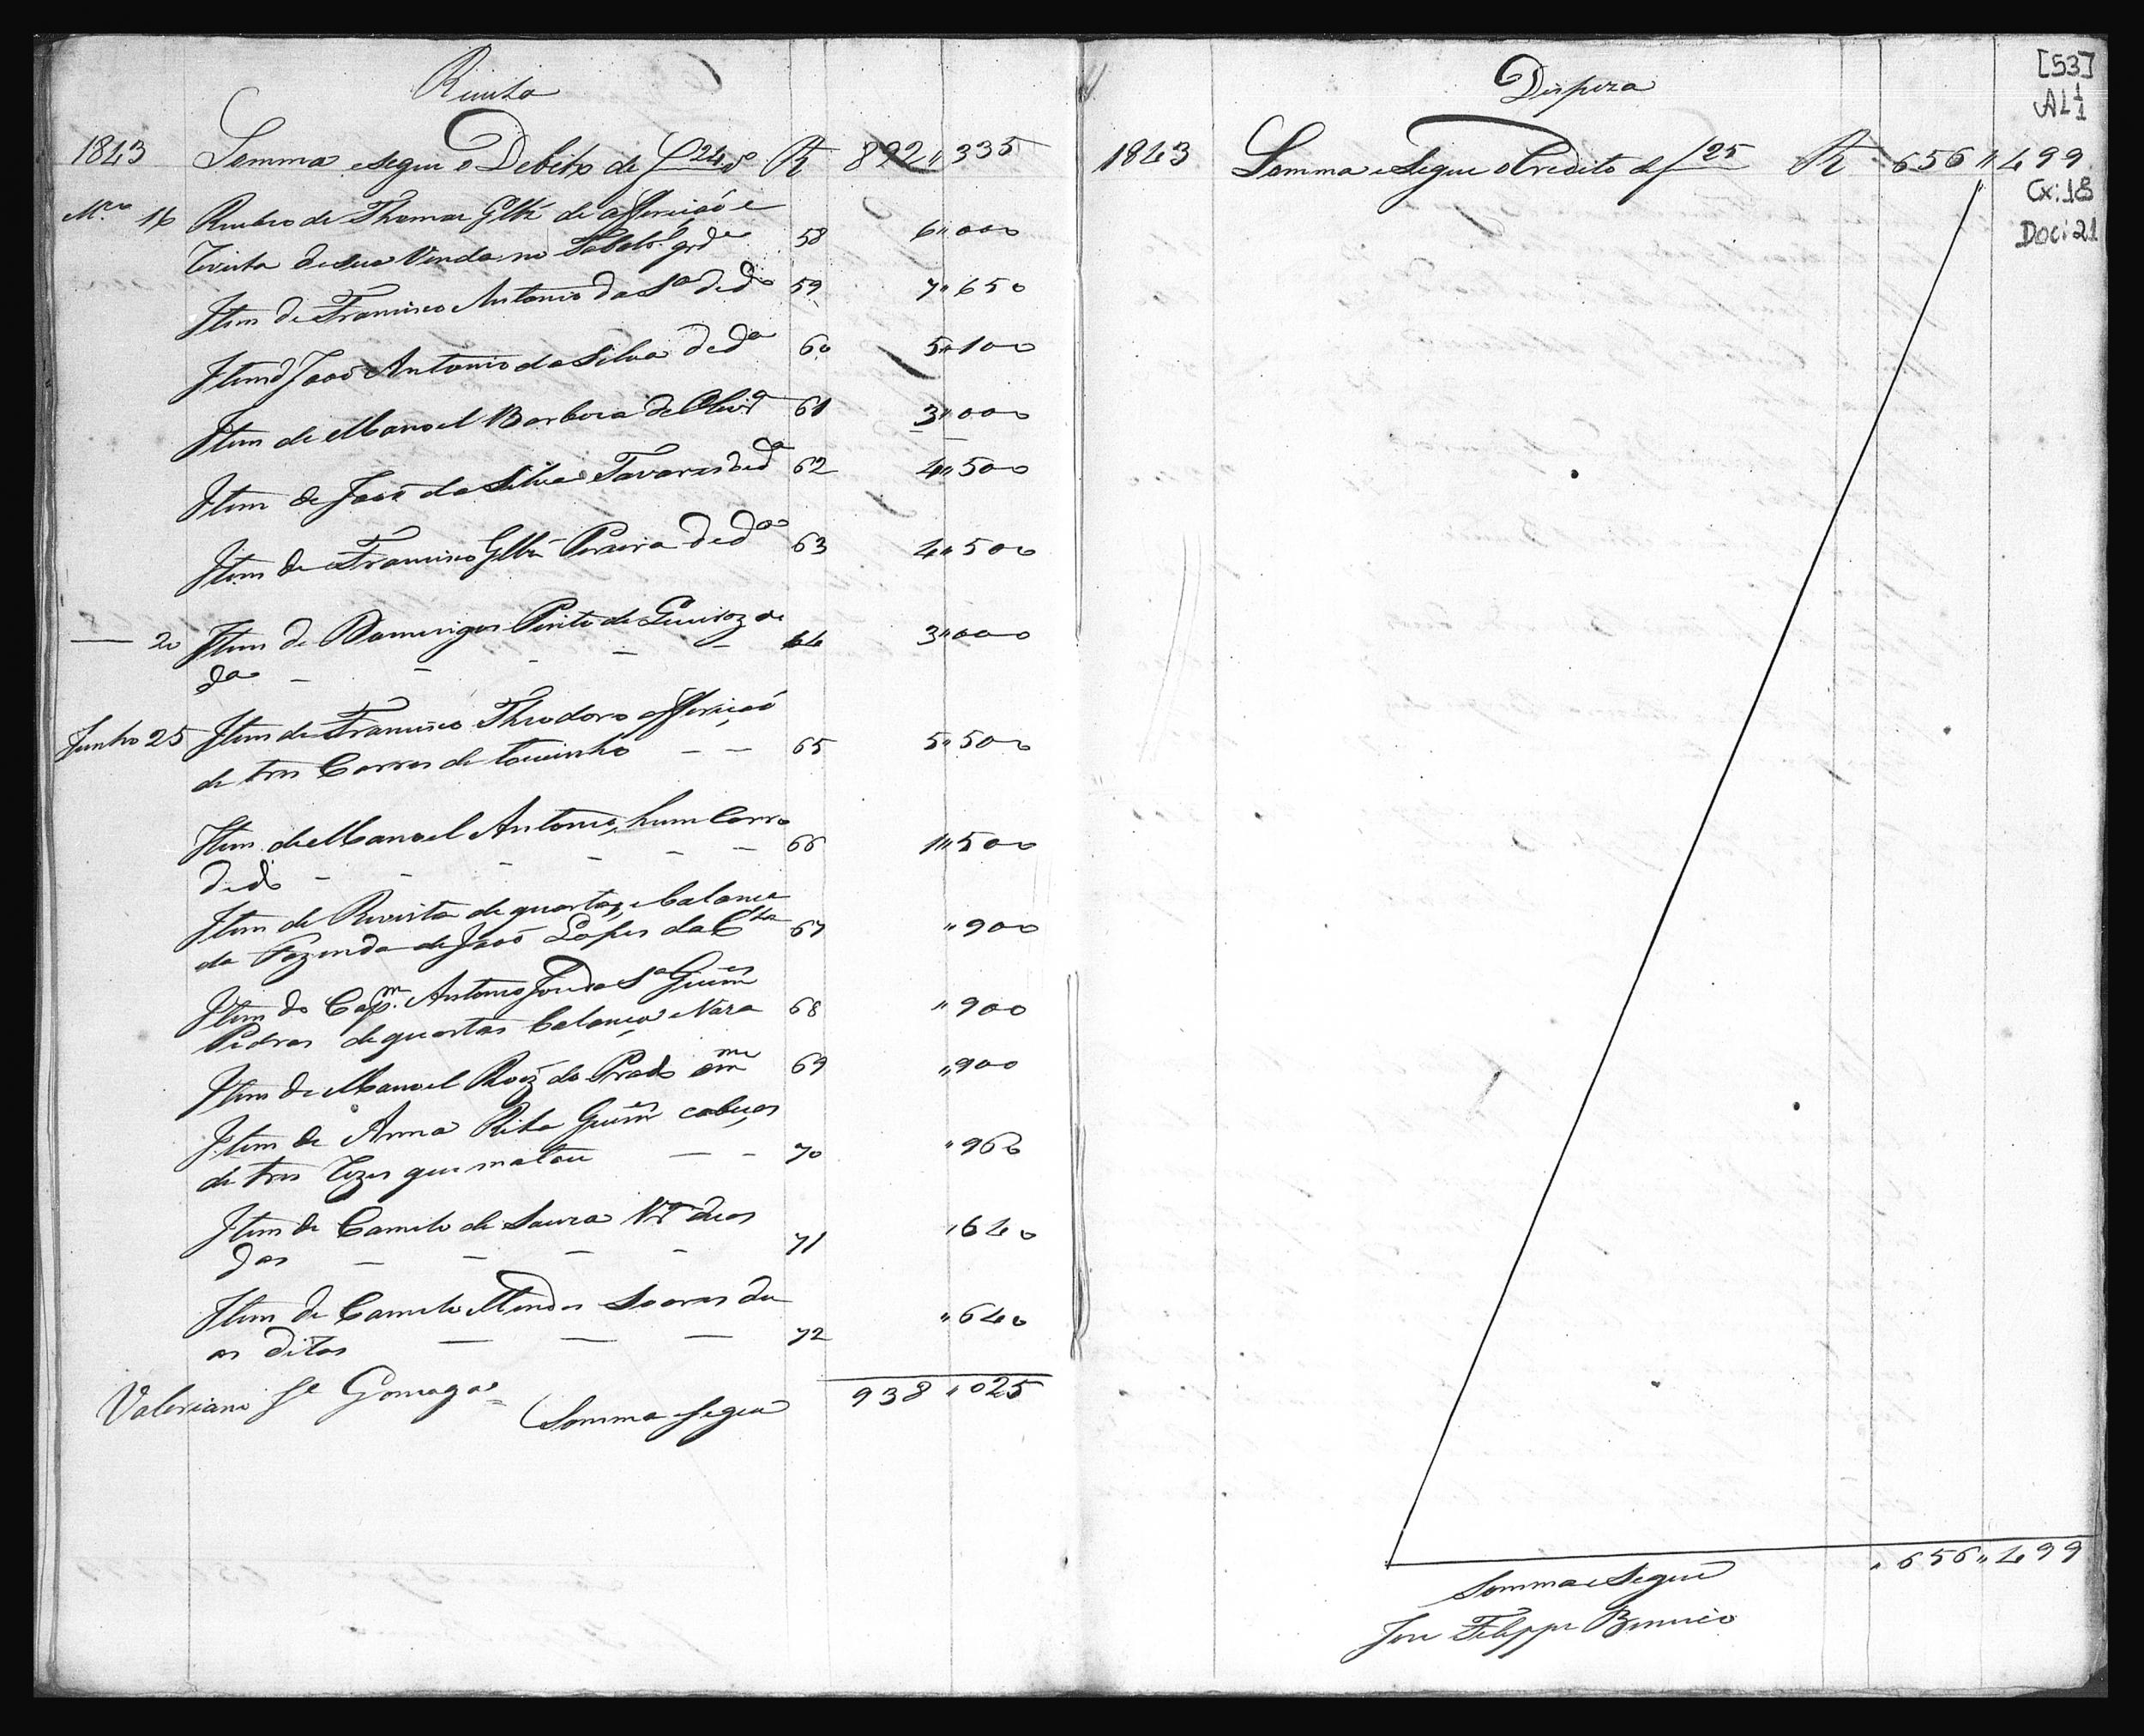 Receita
1843 Somma e segue o Debito de f 24 do R 892"335
M.co 16 Recebeo de Thomas Glz de afferição e
revista de sua Venda no grde 58 6"000
Item de Francisco Antonio da Sa de do 59 7"650
Item d João Antonio da Silva de da 60 5"100
Item de Manoel Barboza de Olivra 61 3"000
Item de João da Silva Tavares de da 62 4"500
Item de Francisco Glz Pereira de da 63 4"500
— 20 Item de Domingos Pinto de Queiroz de
da - - - - - 64 3"000
Junho 25 Item de Francisco Theodoro afferição
de tres Carros de toucinho - - 65 5"500
Item de Manoel Antonio, hum Carro
de do - - - - - - 66 1"500
Item de Revista de quartas, e balança
da Fazenda de João Lopes da Cta 67 "900
Item do Capm. Antonio José da Sa Guimes
Pedras de quartas balança e Vara 68 "900
Item de Manoel Roiz do Prado 69 "900
Item de Anna Rita Guimes cabeças
de tres rezes que matou - - 70 "960
Item de Camilo de Souza duas
das - - - - 71 "640
Item de Camilo Mendes Soares du
as ditas — — — 72 "640
938"025
Valeriano Je Gonzaga
Somma e segue
Despeza
[53]
AL 1/1
1843 Somma e Segue o Credito de f 25 R 656"499
Cx: 18
Doc: 21
656"499
Somma e Segue
Jose Felippe